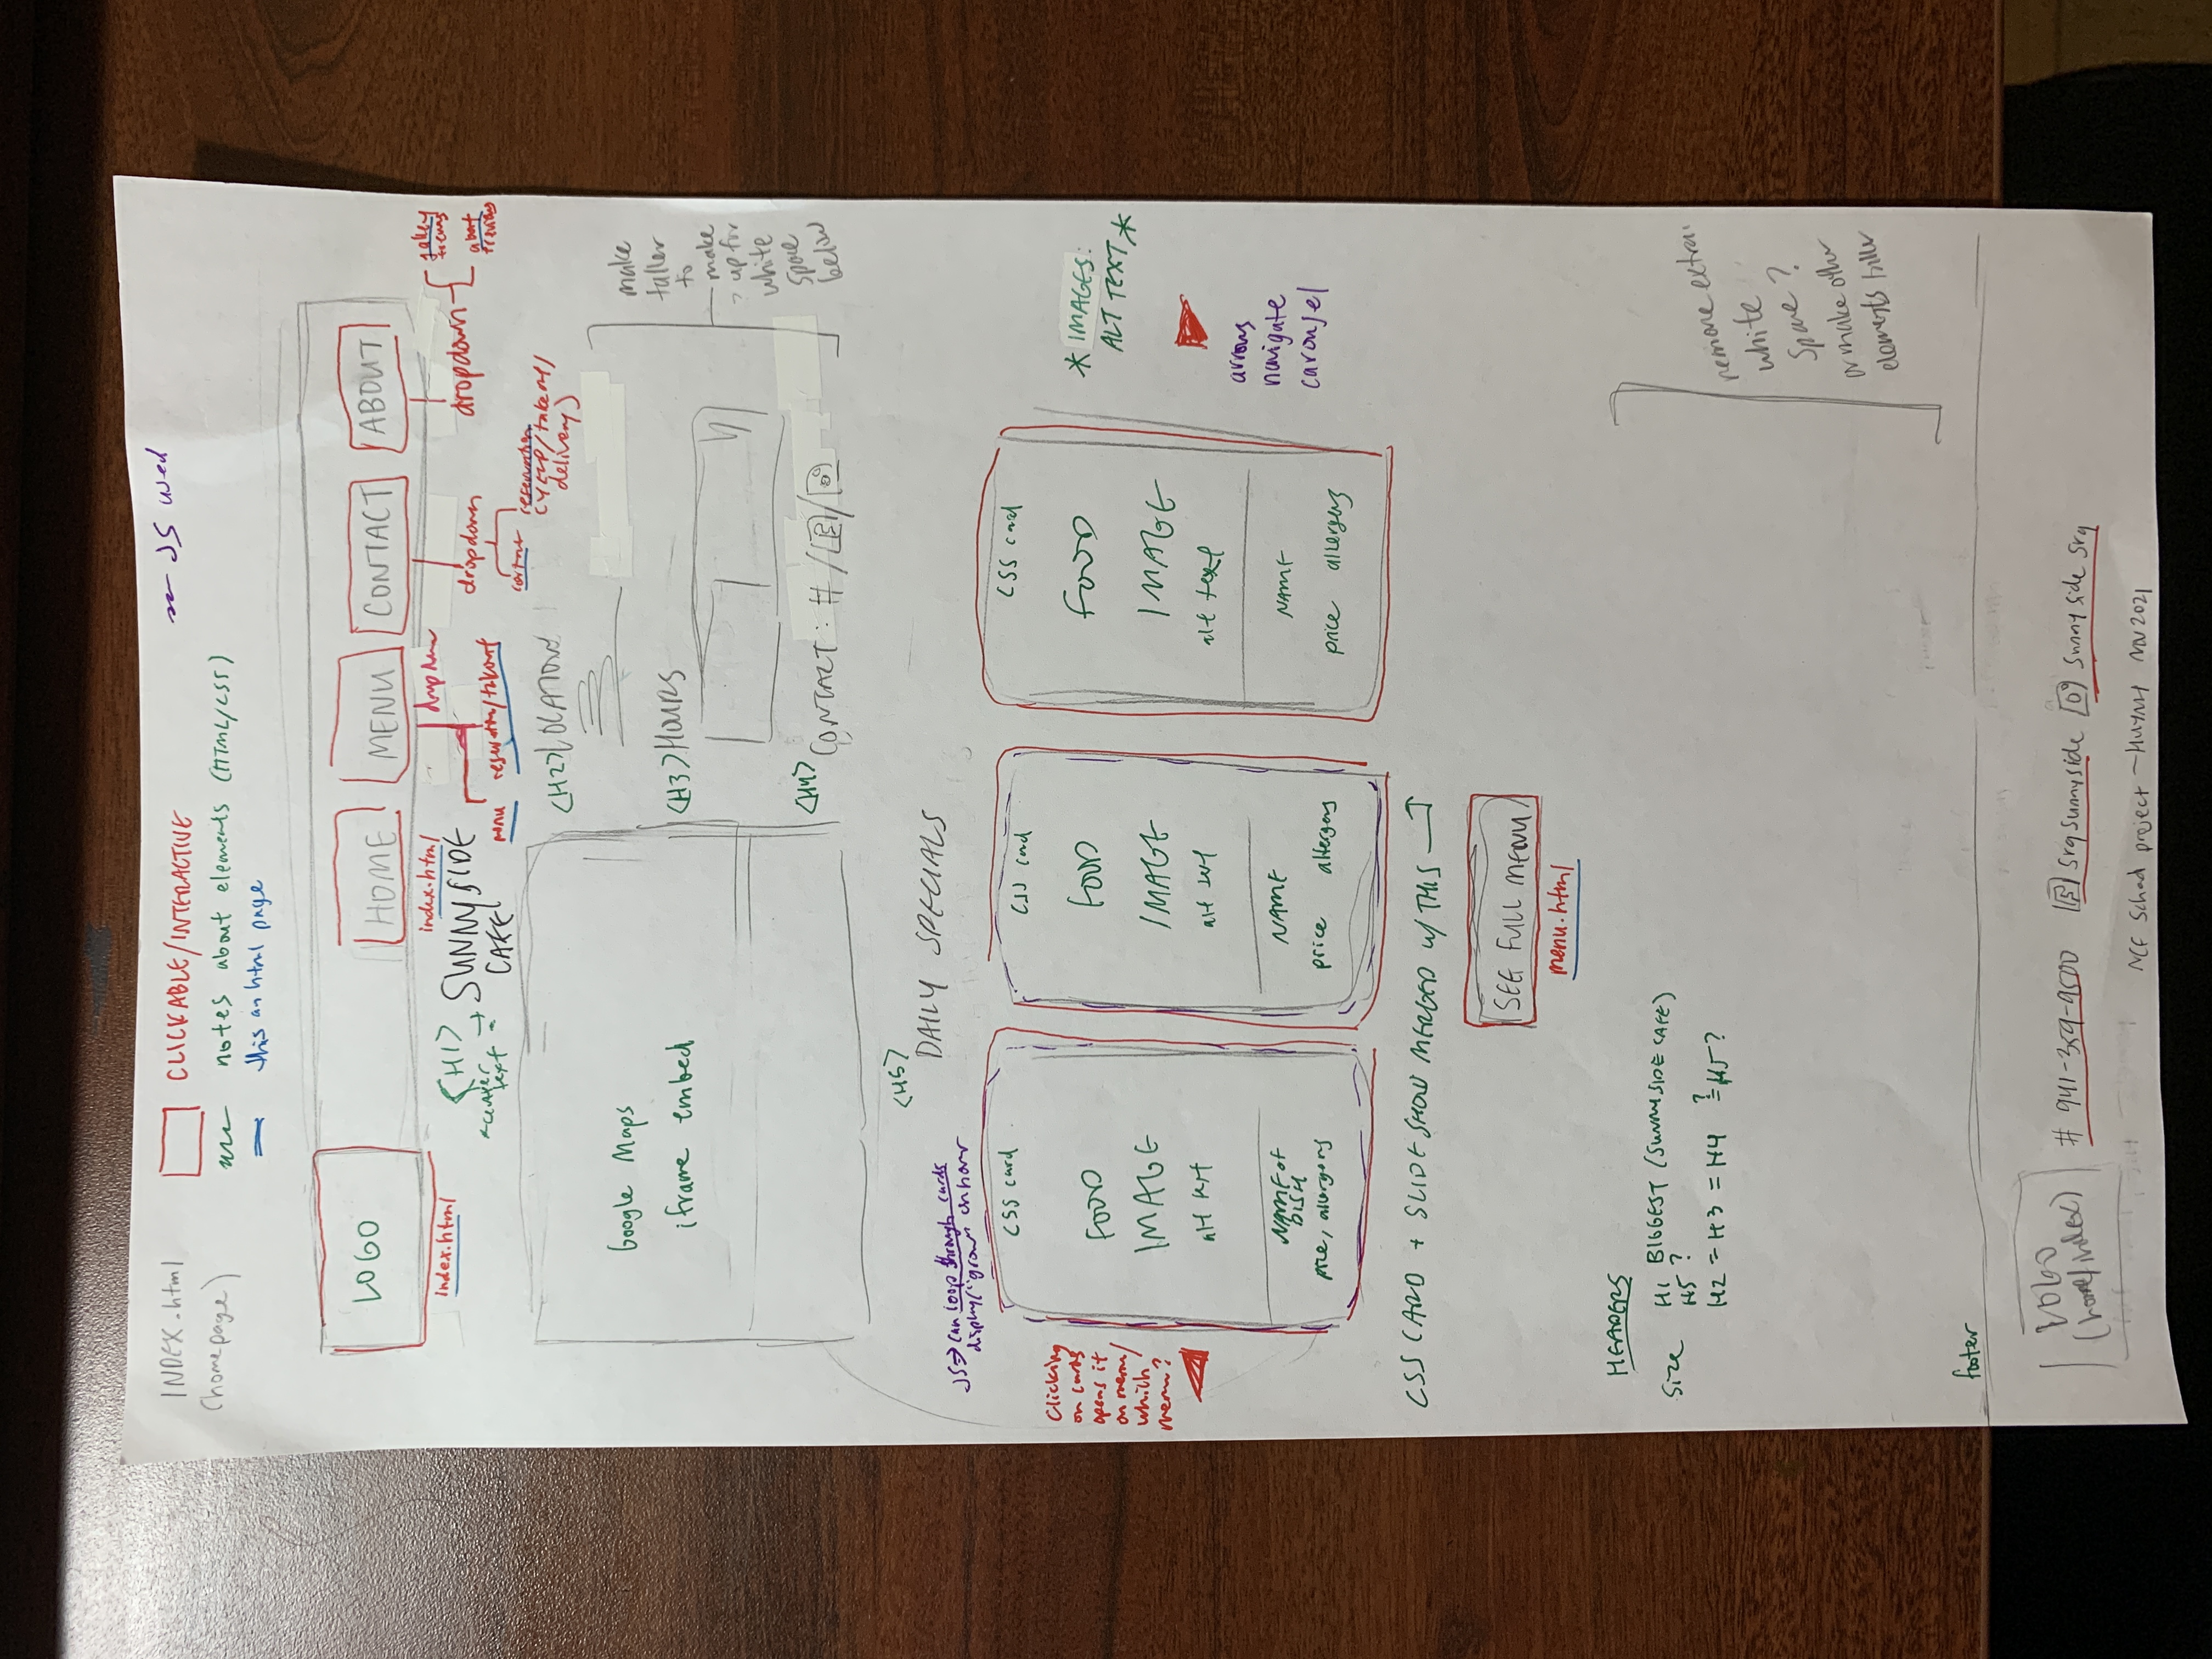 INDEX.html
(homepage)
CLICKABLE/INTERACTIVE
notes about elements (HTML/CSS)
this an html page
JS used
LOGO
index.html
HOME
index.html
MENU
dropdown
menu
reservation/takeout
CONTACT
dropdown
contact
reservation
(YELP/takeout/
delivery)
ABOUT
dropdown
gallery
about
<H1>
*center
text
SUNNYSIDE
CAFE
Google Maps
iframe embed
<H2> LOCATION
<H3> HOURS
<H4> CONTACT: #/
make
taller
to
make
up for
white
space
below
<H5>
DAILY SPECIALS
JS → can loop through cards
display/"grow" on hover
Clicking
on cards
opens it
on menu/
which
menu?
CSS card
FOOD
IMAGE
alt text
NAME OF
DISH
price, allergens
CSS card
FOOD
IMAGE
alt text
NAME
price allergens
CSS card
FOOD
IMAGE
alt text
NAME
price allergens
* IMAGES:
ALT TEXT *
arrows
navigate
carousel
CSS CARD + SLIDESHOW MERGED w/ THIS
SEE FULL MENU
menu.html
HEADERS
Size H1 BIGGEST (SUNNYSIDE CAFE)
H5 ?
H2 = H3 = H4 ?= H5?
remove extra
white
space?
or make other
elements taller
footer
LOGO
(home/index)
# 941-359-9500
srqsunnyside
sunnysidesrq
NCF Schad project – HUYNH NOV 2021